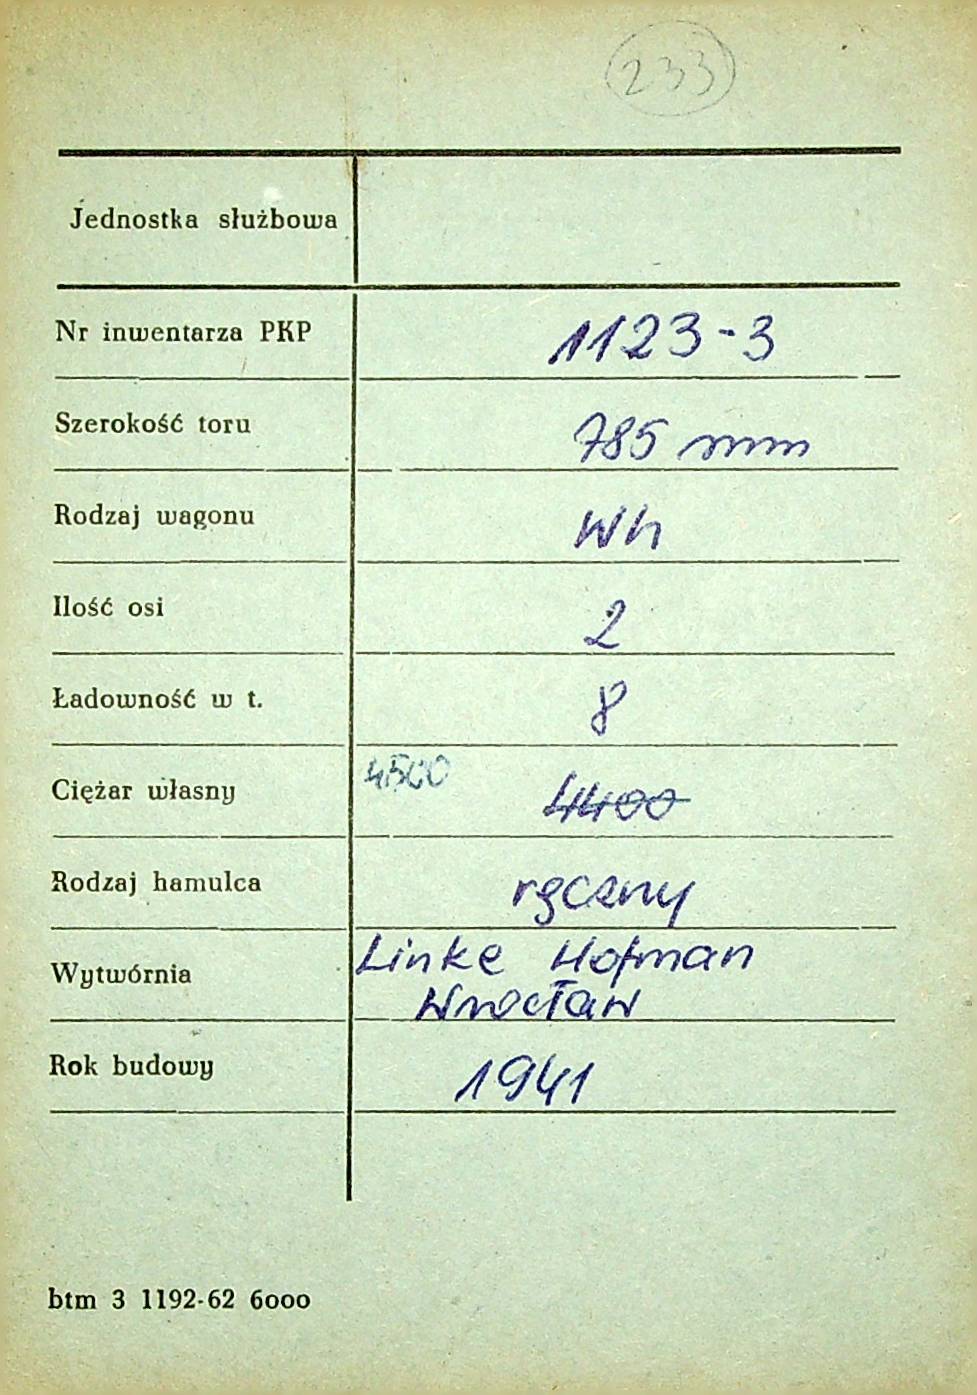 233
Jednostka służbowa
Nr inwentarza PKP 1123-3
Szerokość toru 785 mm
Rodzaj wagonu Wh
Ilość osi 2
Ładowność w t. 8
Ciężar własny 4500 4400
Rodzaj hamulca ręczny
Wytwórnia Linke Hofman
Wrocław
Rok budowy 1941
btm 3 1192-62 6000